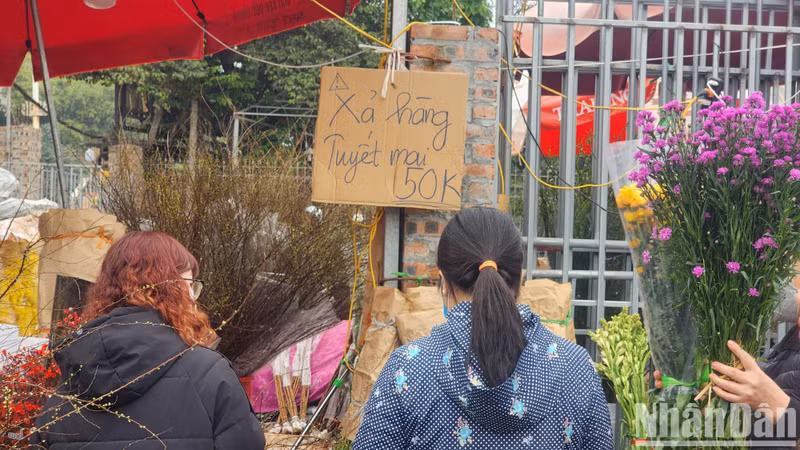 Xả hãng
Tuyết mai
50K
NhânDân